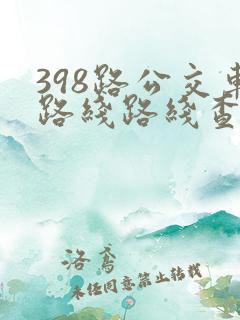 398路公交車
路线路线查
洛鳶
未经同意禁止转载